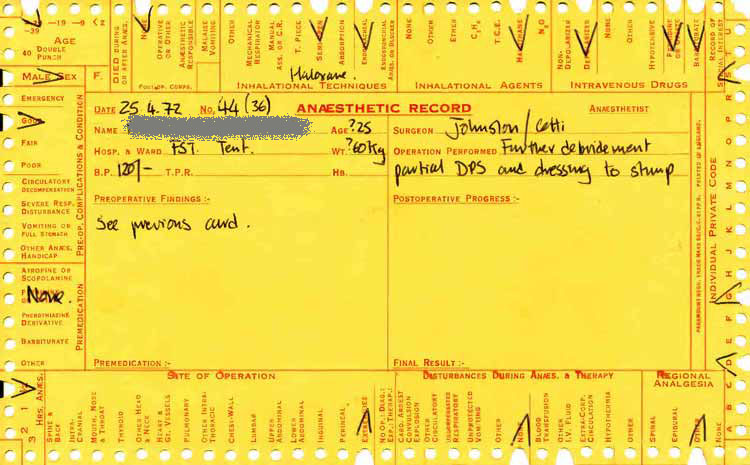 -39 -19 -9 <2
AGE
40 DOUBLE PUNCH
MALE SEX F.
DIED DURING OR AFTER ANÆS.
NONE
OPERATIVE OR OTHER
ANÆSTHETIC RESPONSIBLE
MALAISE VOMITING
OTHER
POST-OP. COMPS.
MECHANICAL RESPIRATOR
MANUAL ASS. OR C.R.
T. PIECE
SEMI-OPEN
ABSORPTION
ENDOTRACHEAL
ENDOBRONCHIAL
INHALATIONAL TECHNIQUES
Halovane.
OTHER
ETHER
C₂H₄
T.C.E.
HALOTHANE
N₂O
INHALATIONAL AGENTS
NON-DEPOLARIZER
DEPOLARIZER
OTHER
HYPOTENSIVE
PETHIDINE OR OTHER
BARBITURATE
INTRAVENOUS DRUGS
RECORD OF SPECIAL INTEREST
EMERGENCY
GOOD
FAIR
POOR
CIRCULATORY DECOMPENSATION
SEVERE RESP. DISTURBANCE
VOMITING OR FULL STOMACH
OTHER ANÆS. HANDICAP
PRE-OP. COMPLICATIONS & CONDITION
ATROPINE OR SCOPOLAMINE
None.
PHENOTHIAZINE DERIVATIVE
BARBITURATE
OTHER
PREMEDICATION
DATE 25.4.72 No. 44 (36) ANÆSTHETIC RECORD ANÆSTHETIST
NAME AGE ?25 SURGEON Johnston/Cetti
HOSP. & WARD FST. Tent. WT. ?60kg OPERATION PERFORMED Further debridement
B.P. 120/- T.P.R. HB. partial DPS and dressing to stump
PREOPERATIVE FINDINGS :- POSTOPERATIVE PROGRESS :-
See previous card.
PREMEDICATION :- FINAL RESULT :-
INDIVIDUAL PRIVATE CODE
A B C D E F G H I J K L M N O P Q R S T
PRINTED IN ENGLAND.
SITE OF OPERATION DISTURBANCES DURING ANÆS. & THERAPY REGIONAL ANALGESIA
HRS. ANÆS.
3 2 1
SPINE & BACK
INTRA-CRANIAL
MOUTH, NOSE & THROAT
THYROID
OTHER HEAD & NECK
HEART & GT. VESSELS
PULMONARY
OTHER INTRA-THORACIC
CHEST-WALL
LUMBAR
UPPER ABDOMINAL
LOWER ABDOMINAL
INGUINAL
PERINEAL
EXTREMITIES
NO OP.: DIAG.: EXP.: THERAP.:
CARD. ARREST CONVULSION EXPLOSION
OTHER CIRCULATORY
UNDEPRESSED RESPIRATORY
UNPROTECTED VOMITING
OTHER
NONE
BLOOD TRANSFUSION
OTHER I.V. FLUID
EXTRA-CORP. CIRCULATION
HYPOTHERMIA
OTHER
SPINAL
EPIDURAL
OTHER
NONE